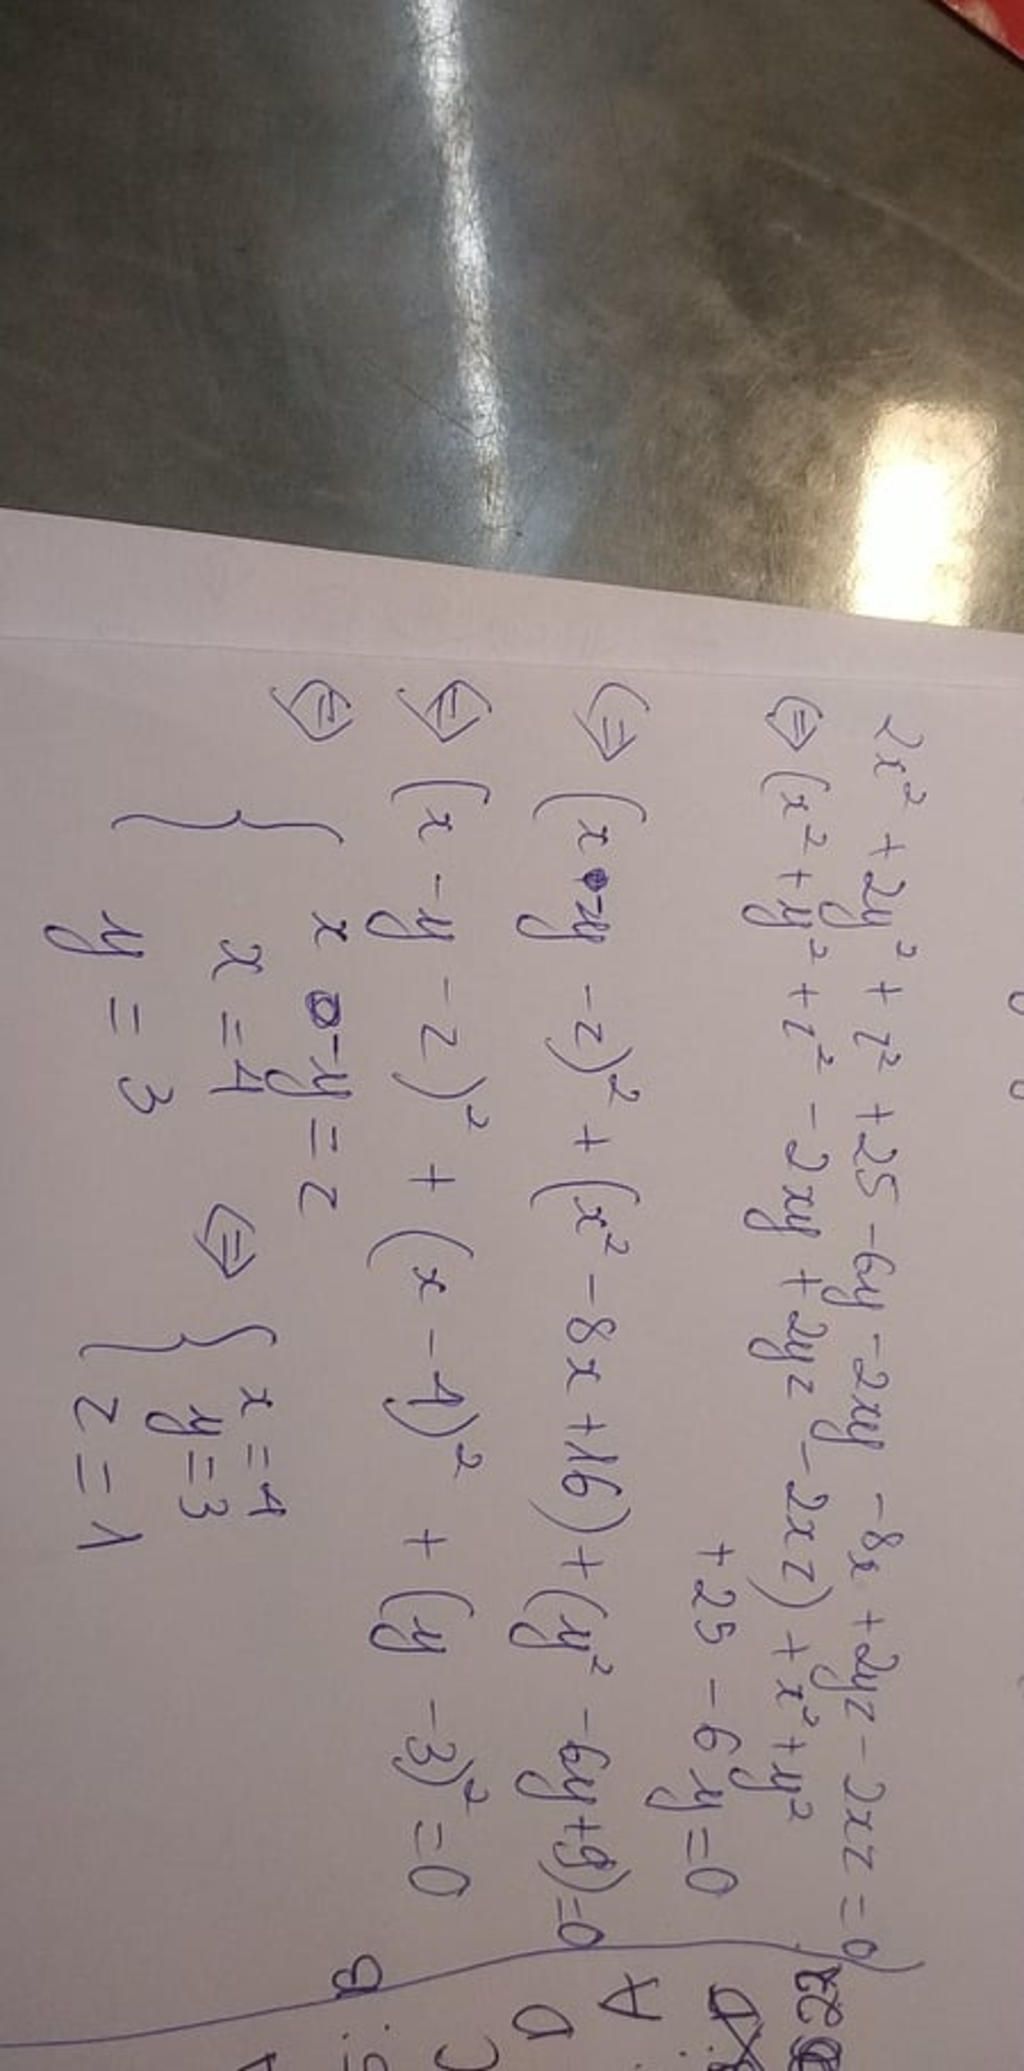 2x² + 2y² + z² + 25 - 6y - 2xy - 8x + 2yz - 2xz = 0
⇔ (x² + y² + z² - 2xy + 2yz - 2xz) + x² + y²
+ 25 - 6y = 0
⇔ (x - y - z)² + (x² - 8x + 16) + (y² - 6y + 9) = 0
⇔ (x - y - z)² + (x - 4)² + (y - 3)² = 0
⇔ { x - y = z
x = 4 ⇔ { x = 4
y = 3 y = 3
z = 1
A
D
B
C